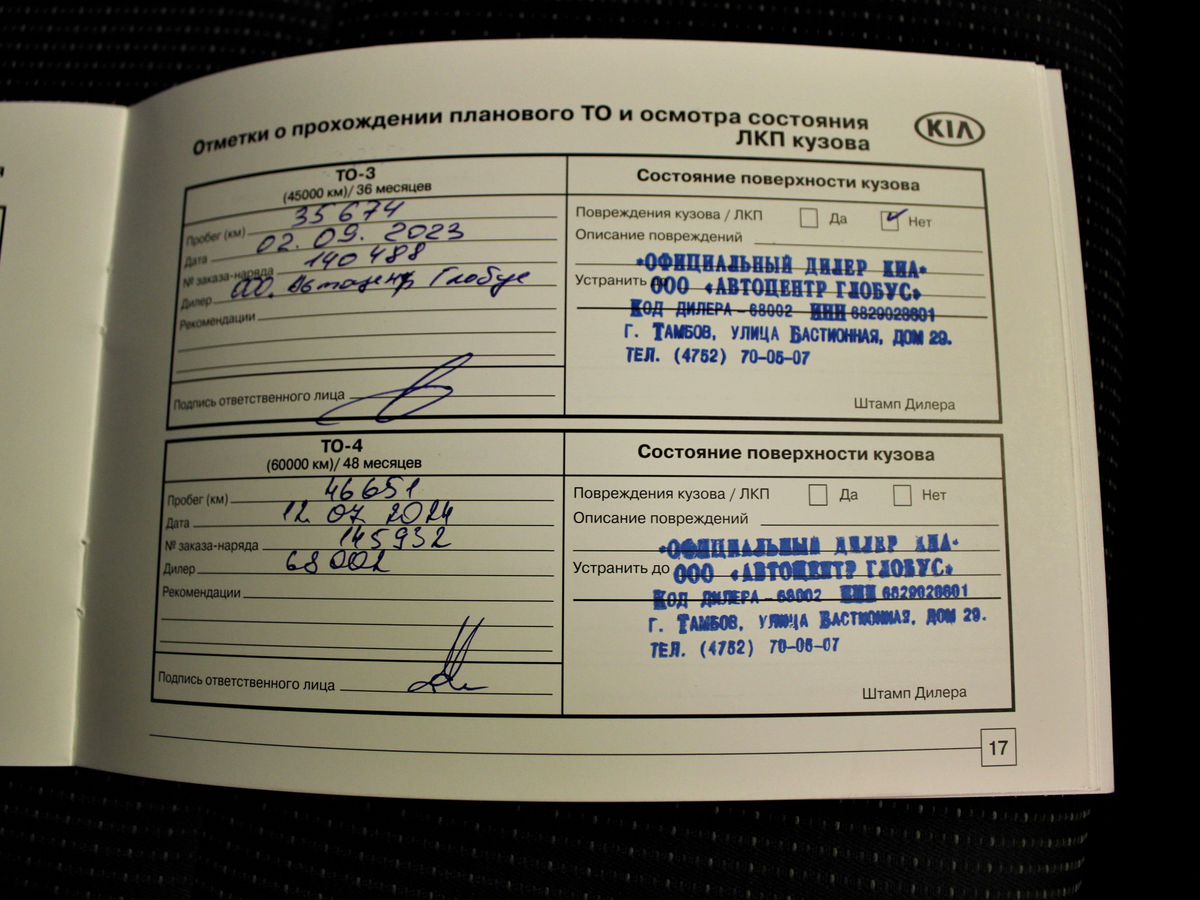 Отметки о прохождении планового ТО и осмотра состояния
ЛКП кузова
KIA
ТО-3
(45000 км)/ 36 месяцев
Пробег (км) 35674
Дата 02.09.2023
№ заказа-наряда 140488
Дилер ООО. Автоцентр Глобус
Рекомендации
Подпись ответственного лица
Состояние поверхности кузова
Повреждения кузова / ЛКП Да Нет
Описание повреждений
•ОФИЦИАЛЬНЫЙ ДИЛЕР КИА•
Устранить до ООО «АВТОЦЕНТР ГЛОБУС»
КОД ДИЛЕРА – 68002 ИНН 6829028601
Г. ТАМБОВ, УЛИЦА БАСТИОННАЯ, ДОМ 29.
ТЕЛ. (4752) 70-05-07
Штамп Дилера
ТО-4
(60000 км)/ 48 месяцев
Пробег (км) 46651
Дата 12.07.2024
№ заказа-наряда 145932
Дилер 68002
Рекомендации
Подпись ответственного лица
Состояние поверхности кузова
Повреждения кузова / ЛКП Да Нет
Описание повреждений
•ОФИЦИАЛЬНЫЙ ДИЛЕР КИА•
Устранить до ООО «АВТОЦЕНТР ГЛОБУС»
КОД ДИЛЕРА – 68002 ИНН 6829028601
Г. ТАМБОВ, УЛИЦА БАСТИОННАЯ, ДОМ 29.
ТЕЛ. (4752) 70-05-07
Штамп Дилера
17